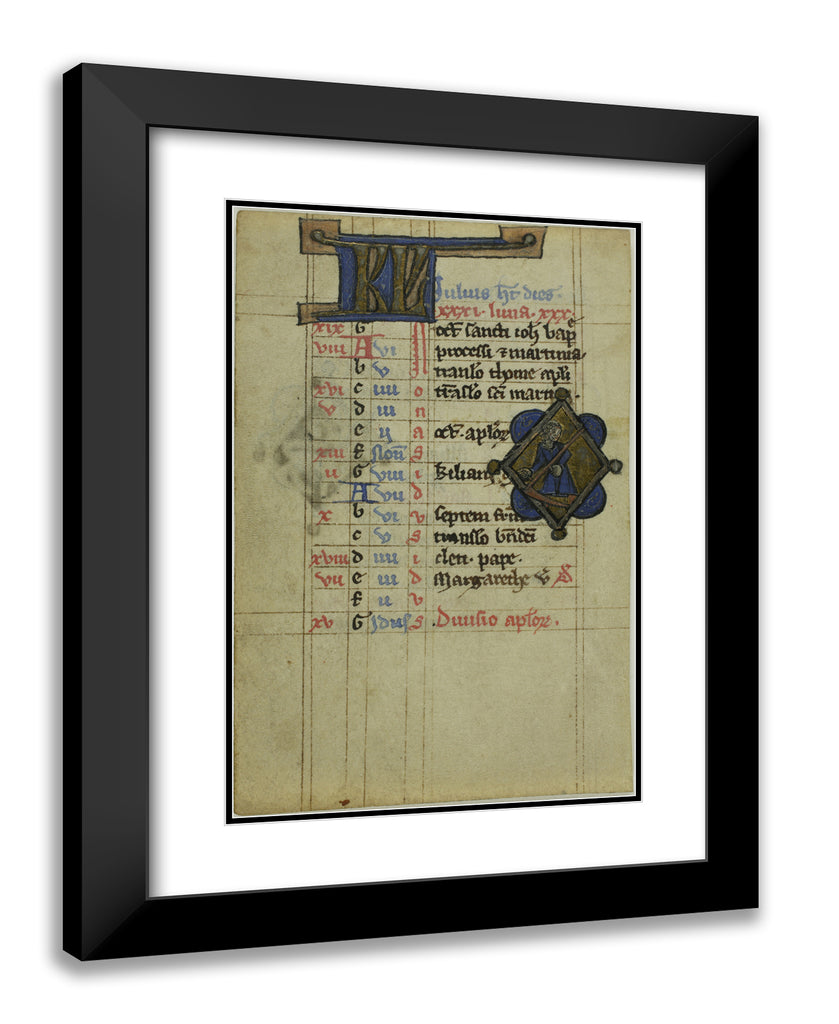 KL
Julius hr dies
xxxi. luna. xxx.
xix G oct sancti ioh bap
viii A vi processi ⁊ martinia
b v translo thome apli
xvi c iiii o trāslo sci martin
v d iii n
e ii a oct. aplor
xiii f Non s
ii G viii i kilian
A vii d
x b vi v septem fr̄m
c v s translo bn̄dci
xviii d iiii i cleti. pape.
vii e iii d Margarethe v̄
f ii v
xv G Idus s .Diuisio aplor.